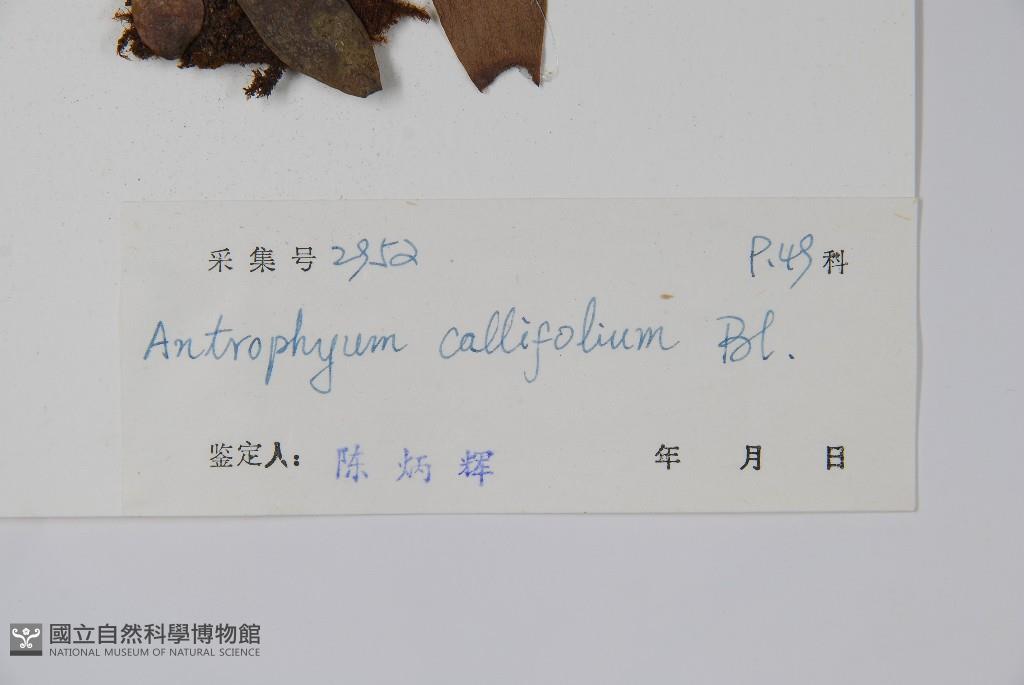 采集号 2952 P.49 科
Antrophyum callifolium Bl.
鉴定人: 陈炳辉 年 月 日
國立自然科學博物館
NATIONAL MUSEUM OF NATURAL SCIENCE